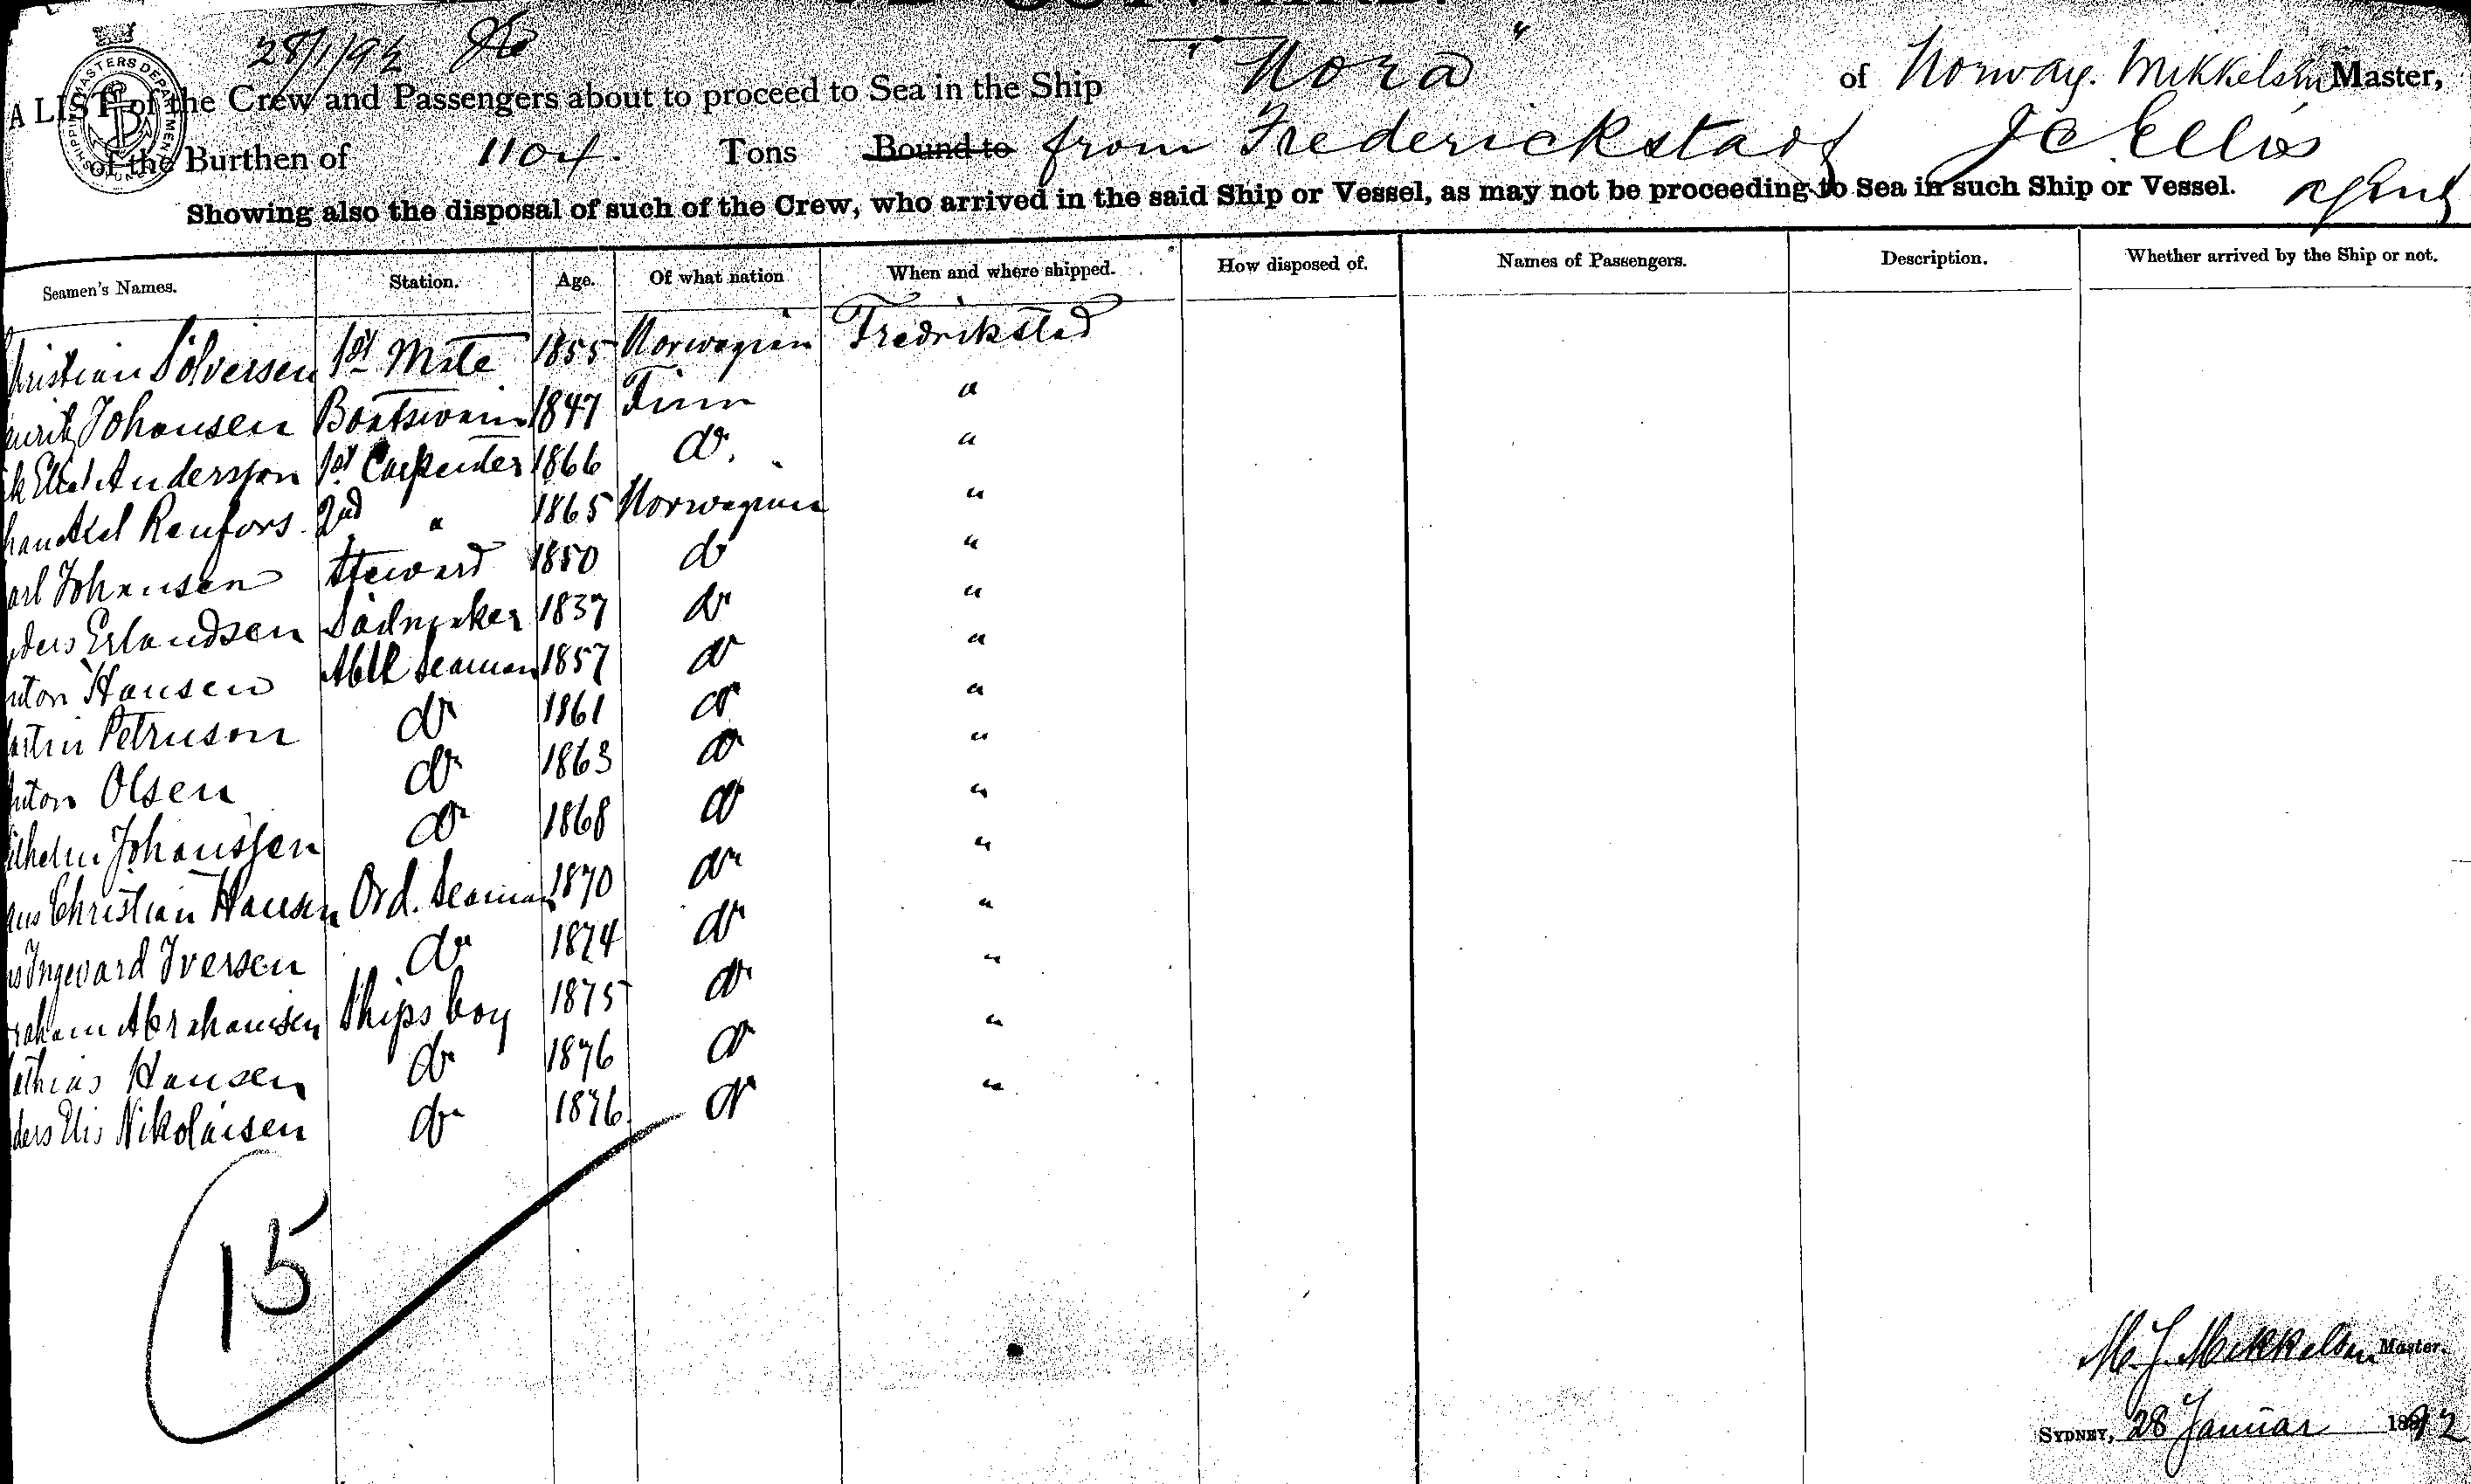 28/1/92
"Nora"
A LIST of the Crew and Passengers about to proceed to Sea in the Ship "Nora" of Norway. Mikkelsen Master,
of the Burthen of 1104. Tons Bound to from Frederickstadt J C Ellis
agent
Showing also the disposal of such of the Crew, who arrived in the said Ship or Vessel, as may not be proceeding to Sea in such Ship or Vessel.
Seamen's Names. Station. Age. Of what nation When and where shipped. How disposed of. Names of Passengers. Description. Whether arrived by the Ship or not.
hristian Sölversen 1st Mate 1855 Norwegian Fredrikstad
auritz Johansen Boatswain 1847 Finn "
Andersson 1st Carpenter 1866 do. "
Renfors. 2nd " 1865 Norwegian "
arl Johansen Steward 1850 do "
ders Erlandsen Sailmaker 1837 do "
nton Hansen Able Seaman 1857 do "
artin Petruson do 1861 do "
nton Olsen do 1863 do "
ilhelm Johanssen do 1868 do "
ans Christian Hansen Ord. Seaman 1870 do "
Ingevard Iversen do 1874 do "
raham Abrahamsen Ships boy 1875 do "
athias Hansen do 1876 do "
ders Elis Nikolaisen do 1876. do "
15
M. J. Mikkelsen Master.
SYDNEY, 28 Januar 1892